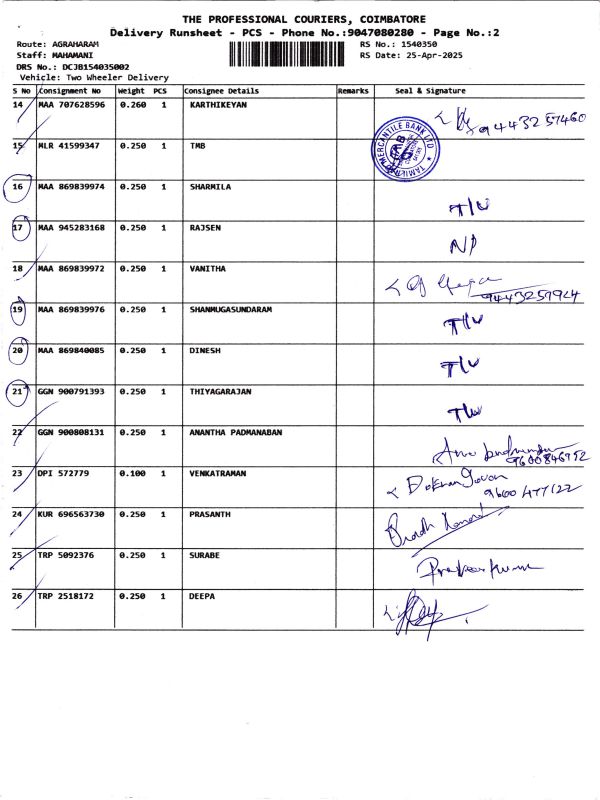 THE PROFESSIONAL COURIERS, COIMBATORE
Delivery Runsheet - PCS - Phone No.:9047080280 - Page No.:2
Route: AGRAHARAM RS No.: 1540350
Staff: MAHAMANI RS Date: 25-Apr-2025
DRS No.: DCJB154035002
Vehicle: Two Wheeler Delivery
S No Consignment No Weight PCS Consignee Details Remarks Seal & Signature
14 MAA 707628596 0.260 1 KARTHIKEYAN
9443257460
15 MLR 41599347 0.250 1 TMB
MERCANTILE BANK LTD
16 MAA 869839974 0.250 1 SHARMILA
17 MAA 945283168 0.250 1 RAJSEN
18 MAA 869839972 0.250 1 VANITHA
19 MAA 869839976 0.250 1 SHANMUGASUNDARAM
20 MAA 869840085 0.250 1 DINESH
21 GGN 900791393 0.250 1 THIYAGARAJAN
22 GGN 900808131 0.250 1 ANANTHA PADMANABAN
23 DPI 572779 0.100 1 VENKATRAMAN
9600477122
24 KUR 696563730 0.250 1 PRASANTH
25 TRP 5092376 0.250 1 SURABE
26 TRP 2518172 0.250 1 DEEPA